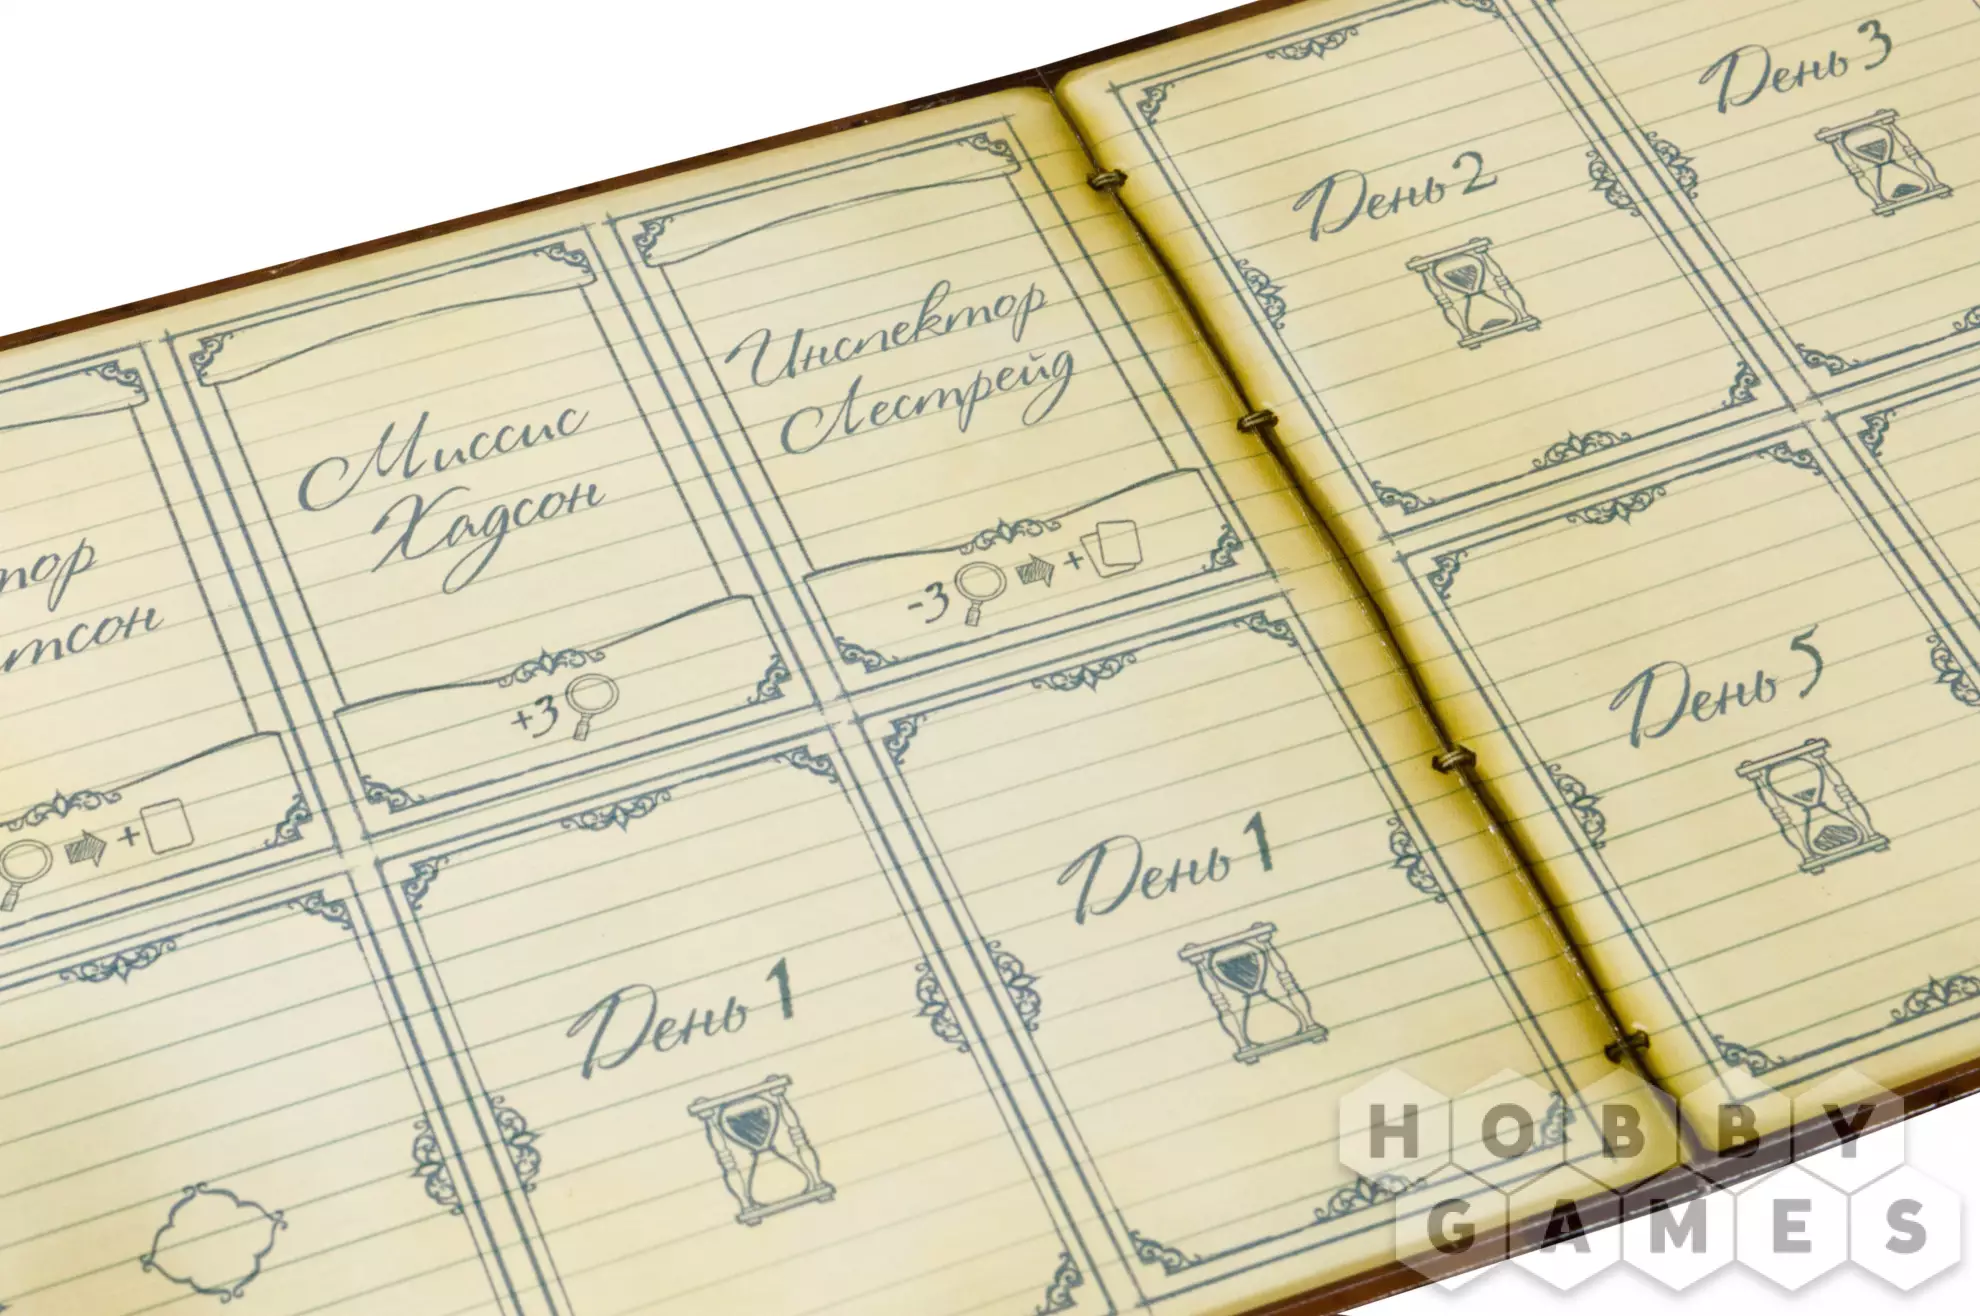 День 3
День 2
Инспектор
Лестрейд
-3 +
Миссис
Хадсон
+3
тор
тсон
+
День 5
День 1
День 1
HOBBY
GAMES